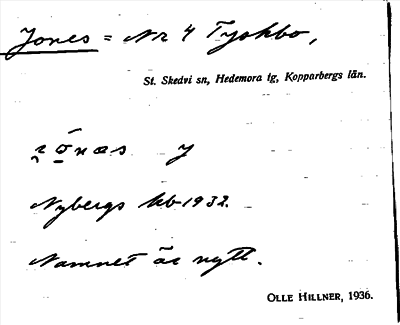 Jones = Nr 4 Tyskbo,
St. Skedvi sn, Hedemora tg, Kopparbergs län.
y
Nybergs kb 1932.
Namnet är nytt.
OLLE HILLNER, 1936.